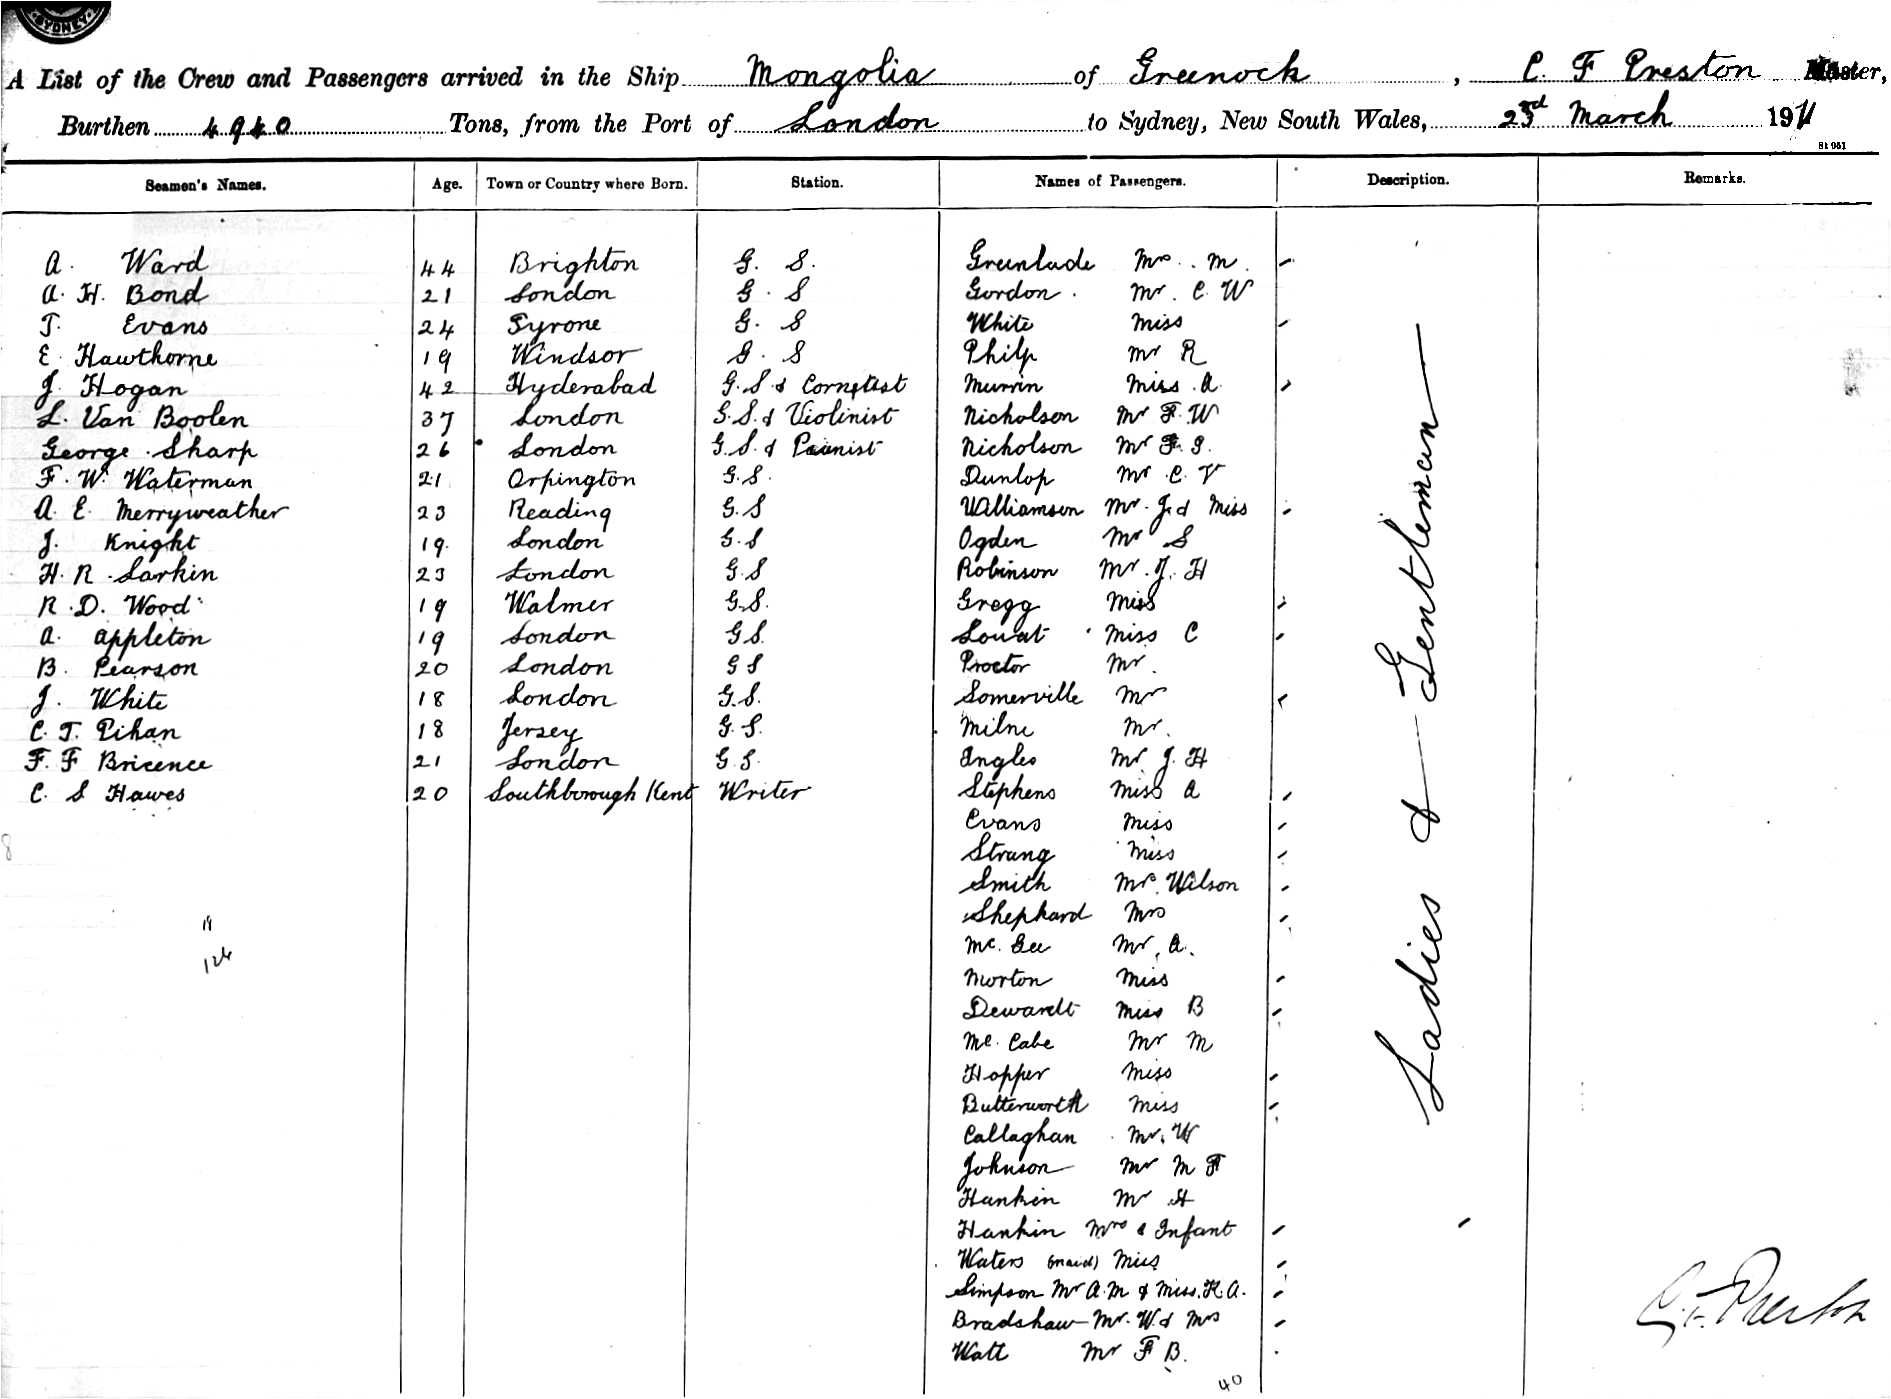 SYDNEY
A List of the Crew and Passengers arrived in the Ship Mongolia of Greenock, C. F Preston Master,
Burthen 4940 Tons, from the Port of London to Sydney, New South Wales, 23rd March 1911
81951
Seamen's Names. Age. Town or Country where Born. Station. Names of Passengers. Description. Remarks.
A. Ward 44 Brighton G. S. Greenlade Mrs. M.
A. H. Bond 21 London G. S Gordon. Mr. C. W
T. Evans 24 Tyrone G. S White Miss
E Hawthorne 19 Windsor G. S Philp Mr R
J. Hogan 42 Hyderabad G. S & Cornetist Murrin Miss A
L. Van Boolen 37 London G. S. & Violinist Nicholson Mr F. W
George Sharp 26 London G. S. & Pianist Nicholson Mr F. S.
F. W. Waterman 21 Orpington G. S. Dunlop Mr C. V
A. E. Merryweather 23 Reading G. S Williamson Mr. J. & Miss
J. Knight 19 London G. S Ogden Mr S
H. R. Larkin 23 London G. S Robinson Mr. J. H
R. D. Wood 19 Walmer G. S. Gregg Miss
A. Appleton 19 London G S. Louat Miss C
B. Pearson 20 London G S Proctor Mr.
J. White 18 London G. S. Somerville Mr
C. T. Pihan 18 Jersey G. S. Milne Mr.
F. F Bricence 21 London G. S. Angles Mr. J. H
C. S Hawes 20 Southborough Kent Writer Stephens Miss A
Evans Miss
Strang Miss
Smith Mrs. Wilson
Shephard Mrs
Mc. Gee Mr. A.
Morton Miss
Dewardt Miss B
Mc. Cabe Mr M
Hopper Miss
Butterworth Miss
Callaghan Mr. W
Johnson Mr M F
Hankin Mr H
Hankin Mrs & Infant
Waters (maid) Miss
Simpson Mr A. M & Miss. K. A.
Bradshaw Mr. W. & Mrs
Watt Mr F B.
Ladies & Gentleman
126
40
C. F. Preston